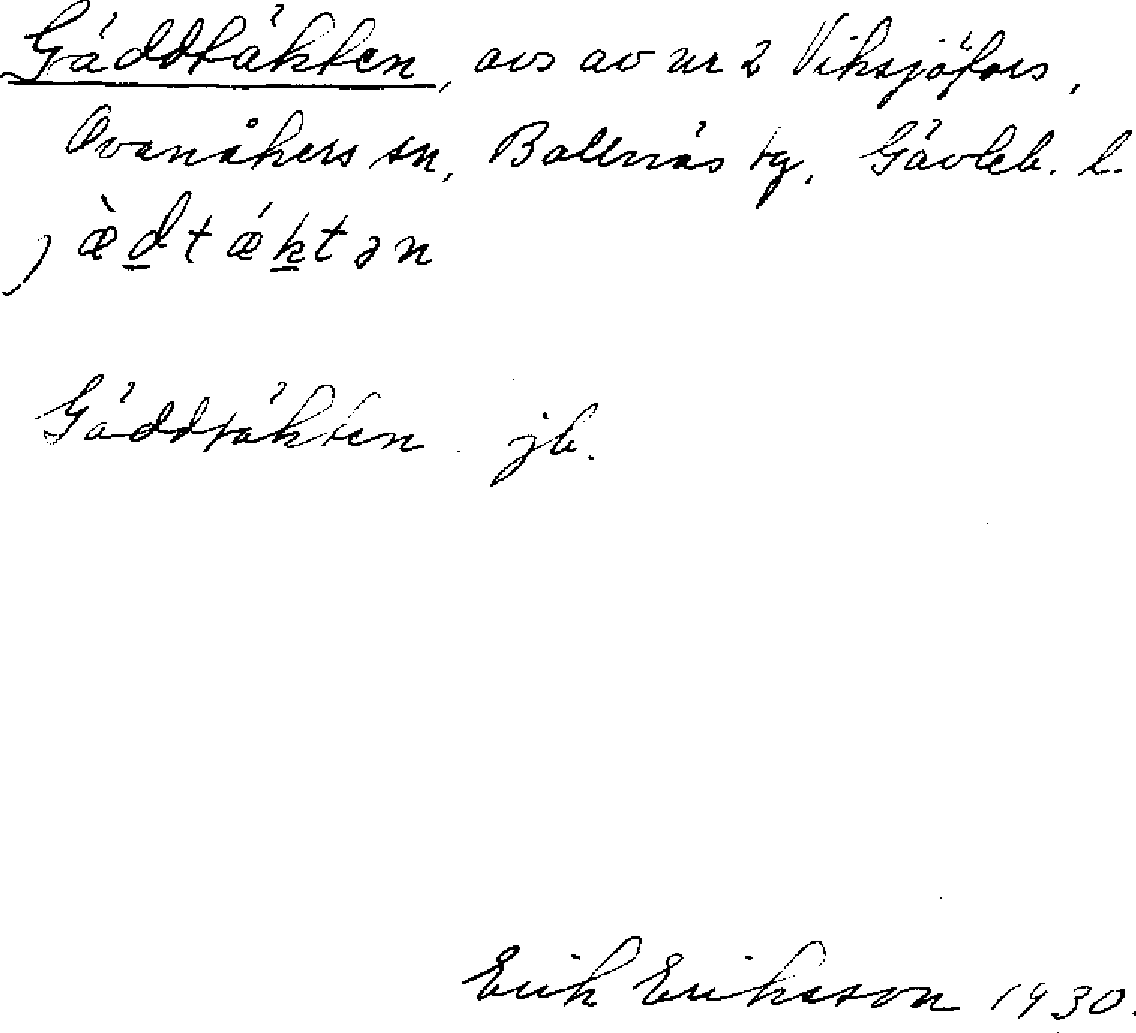 Gäddtäkten, avs av nr 2 Viksjöfors,
Ovanåkers sn, Bollnäs tg, Gävleb. l.
jæ̀d̠tǽk̠tən
Gäddtäkten jb.
Erik Eriksson 1930.